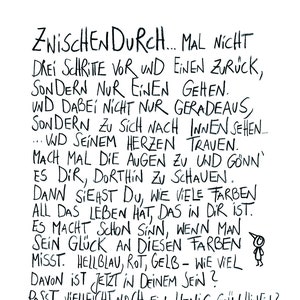 ZWISCHENDURCH... MAL NICHT
DREI SCHRITTE VOR UND EINEN ZURÜCK,
SONDERN NUR EINEN GEHEN.
UND DABEI NICHT NUR GERADEAUS,
SONDERN ZU SICH NACH INNEN SEHEN...
...UND SEINEM HERZEN TRAUEN.
MACH MAL DIE AUGEN ZU UND GÖNN'
ES DIR, DORTHIN ZU SCHAUEN.
DANN SIEHST DU, WIE VIELE FARBEN
ALL DAS LEBEN HAT, DAS IN DIR IST.
ES MACHT SCHON SINN, WENN MAN
SEIN GLÜCK AN DIESEN FARBEN
MISST. HELLBLAU, ROT, GELB - WIE VIEL
DAVON IST JETZT IN DEINEM SEIN?
PASST VIELLEICHT NOCH